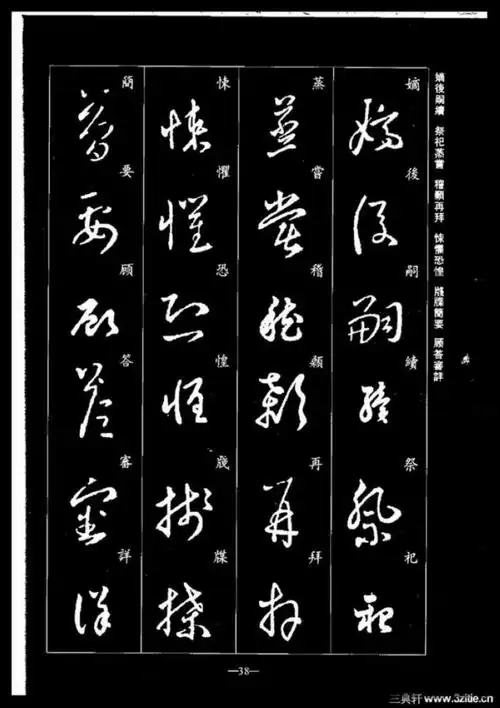 嫡後嗣續 祭祀蒸嘗 稽顙再拜 悚懼恐惶 牋牒簡要 顧答審詳
嫡後嗣續祭祀
蒸嘗稽顙再拜
悚懼恐惶牋牒
簡要顧答審詳
—38—
三典轩 www.3zitie.cn